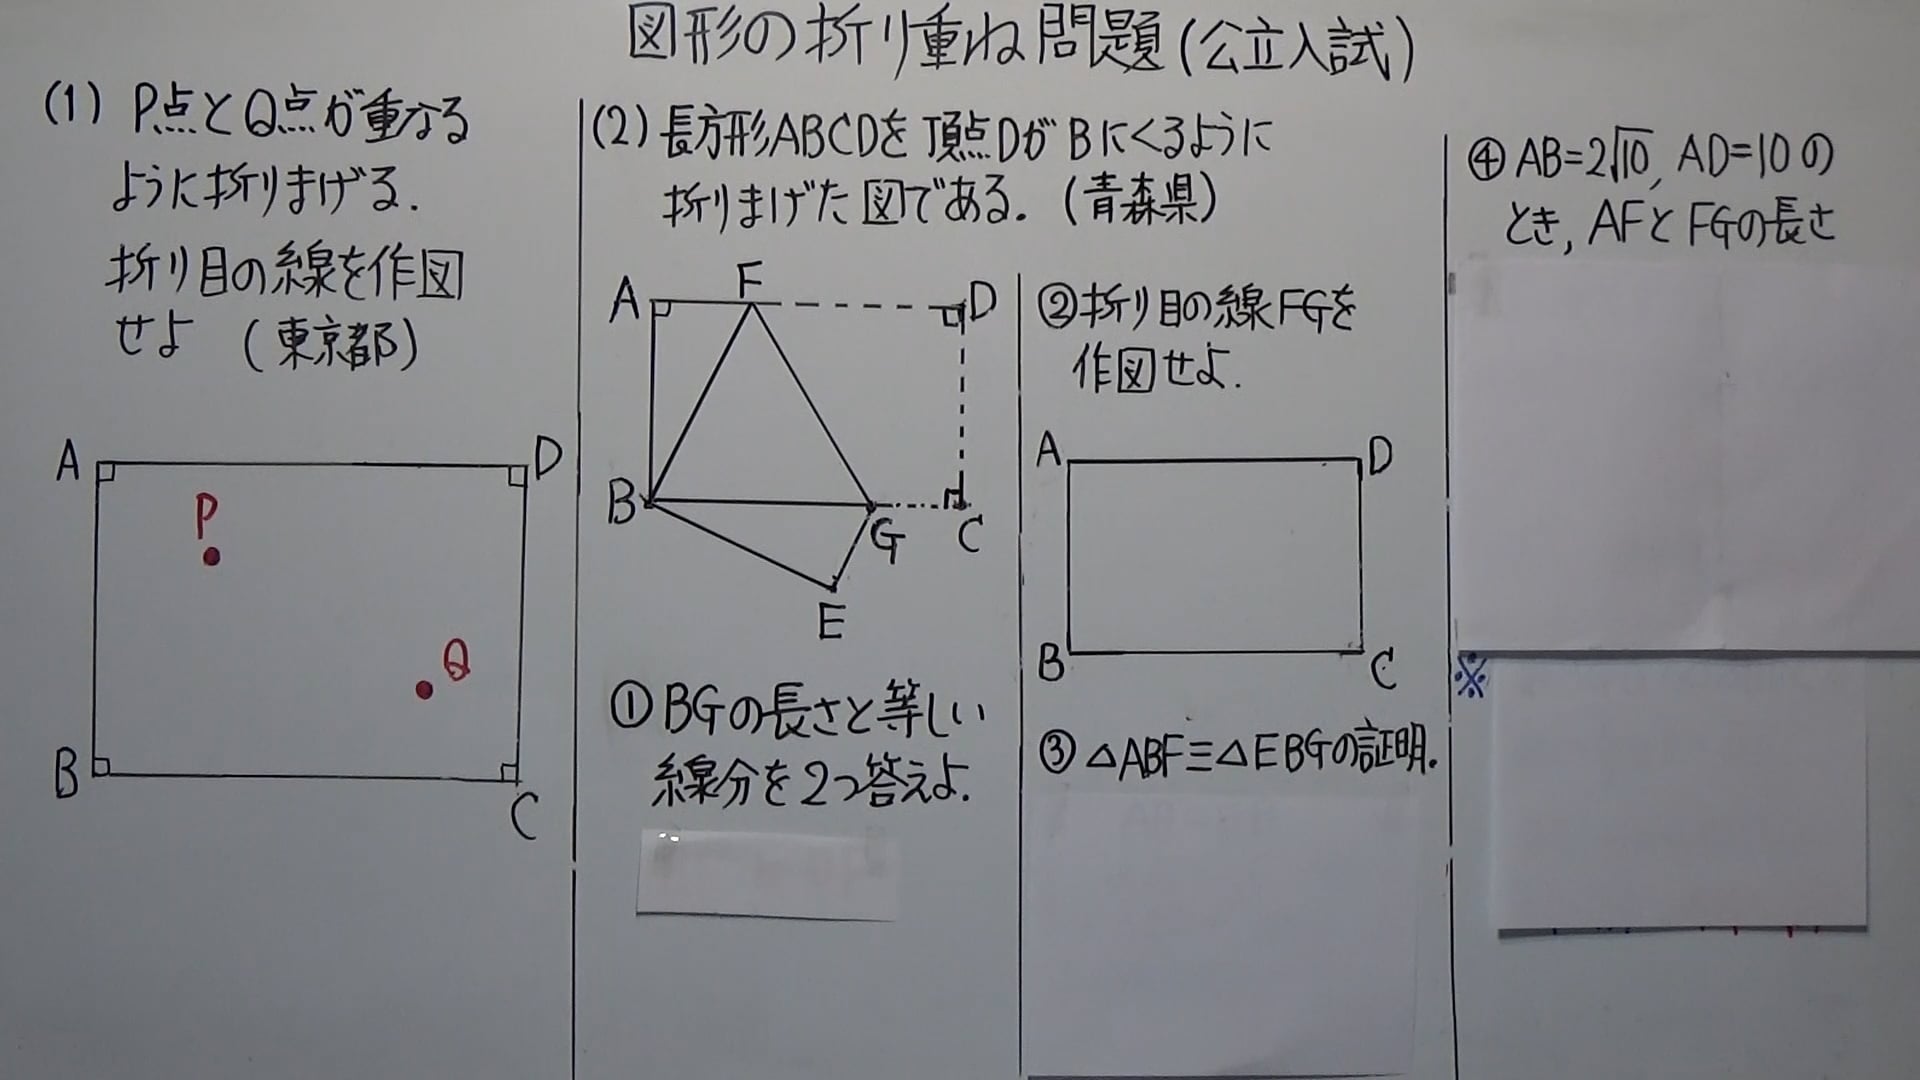 図形の折り重ね問題(公立入試)
(1) P点とQ点が重なる
ように折りまげる.
折り目の線を作図
せよ (東京都)
A
D
P
Q
B
C
(2) 長方形ABCDを頂点DがBにくるように
折りまげた図である. (青森県)
A
F
D
B
G
C
E
① BGの長さと等しい
線分を2つ答えよ.
②折り目の線FGを
作図せよ.
A
D
B
C
③ △ABF≡△EBGの証明.
④ AB=2√10, AD=10の
とき, AFとFGの長さ
※